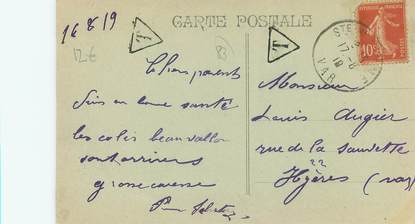 16 8 19
CARTE POSTALE
T
T
12€
83
STE
17-8
19
VAR
10c
Chers parents
suis en bonne santé
les colis beauvallon
sont arrivés
grosse caresse
Monsieur
Louis Augier
rue de la Sauvette
Hyères (var)